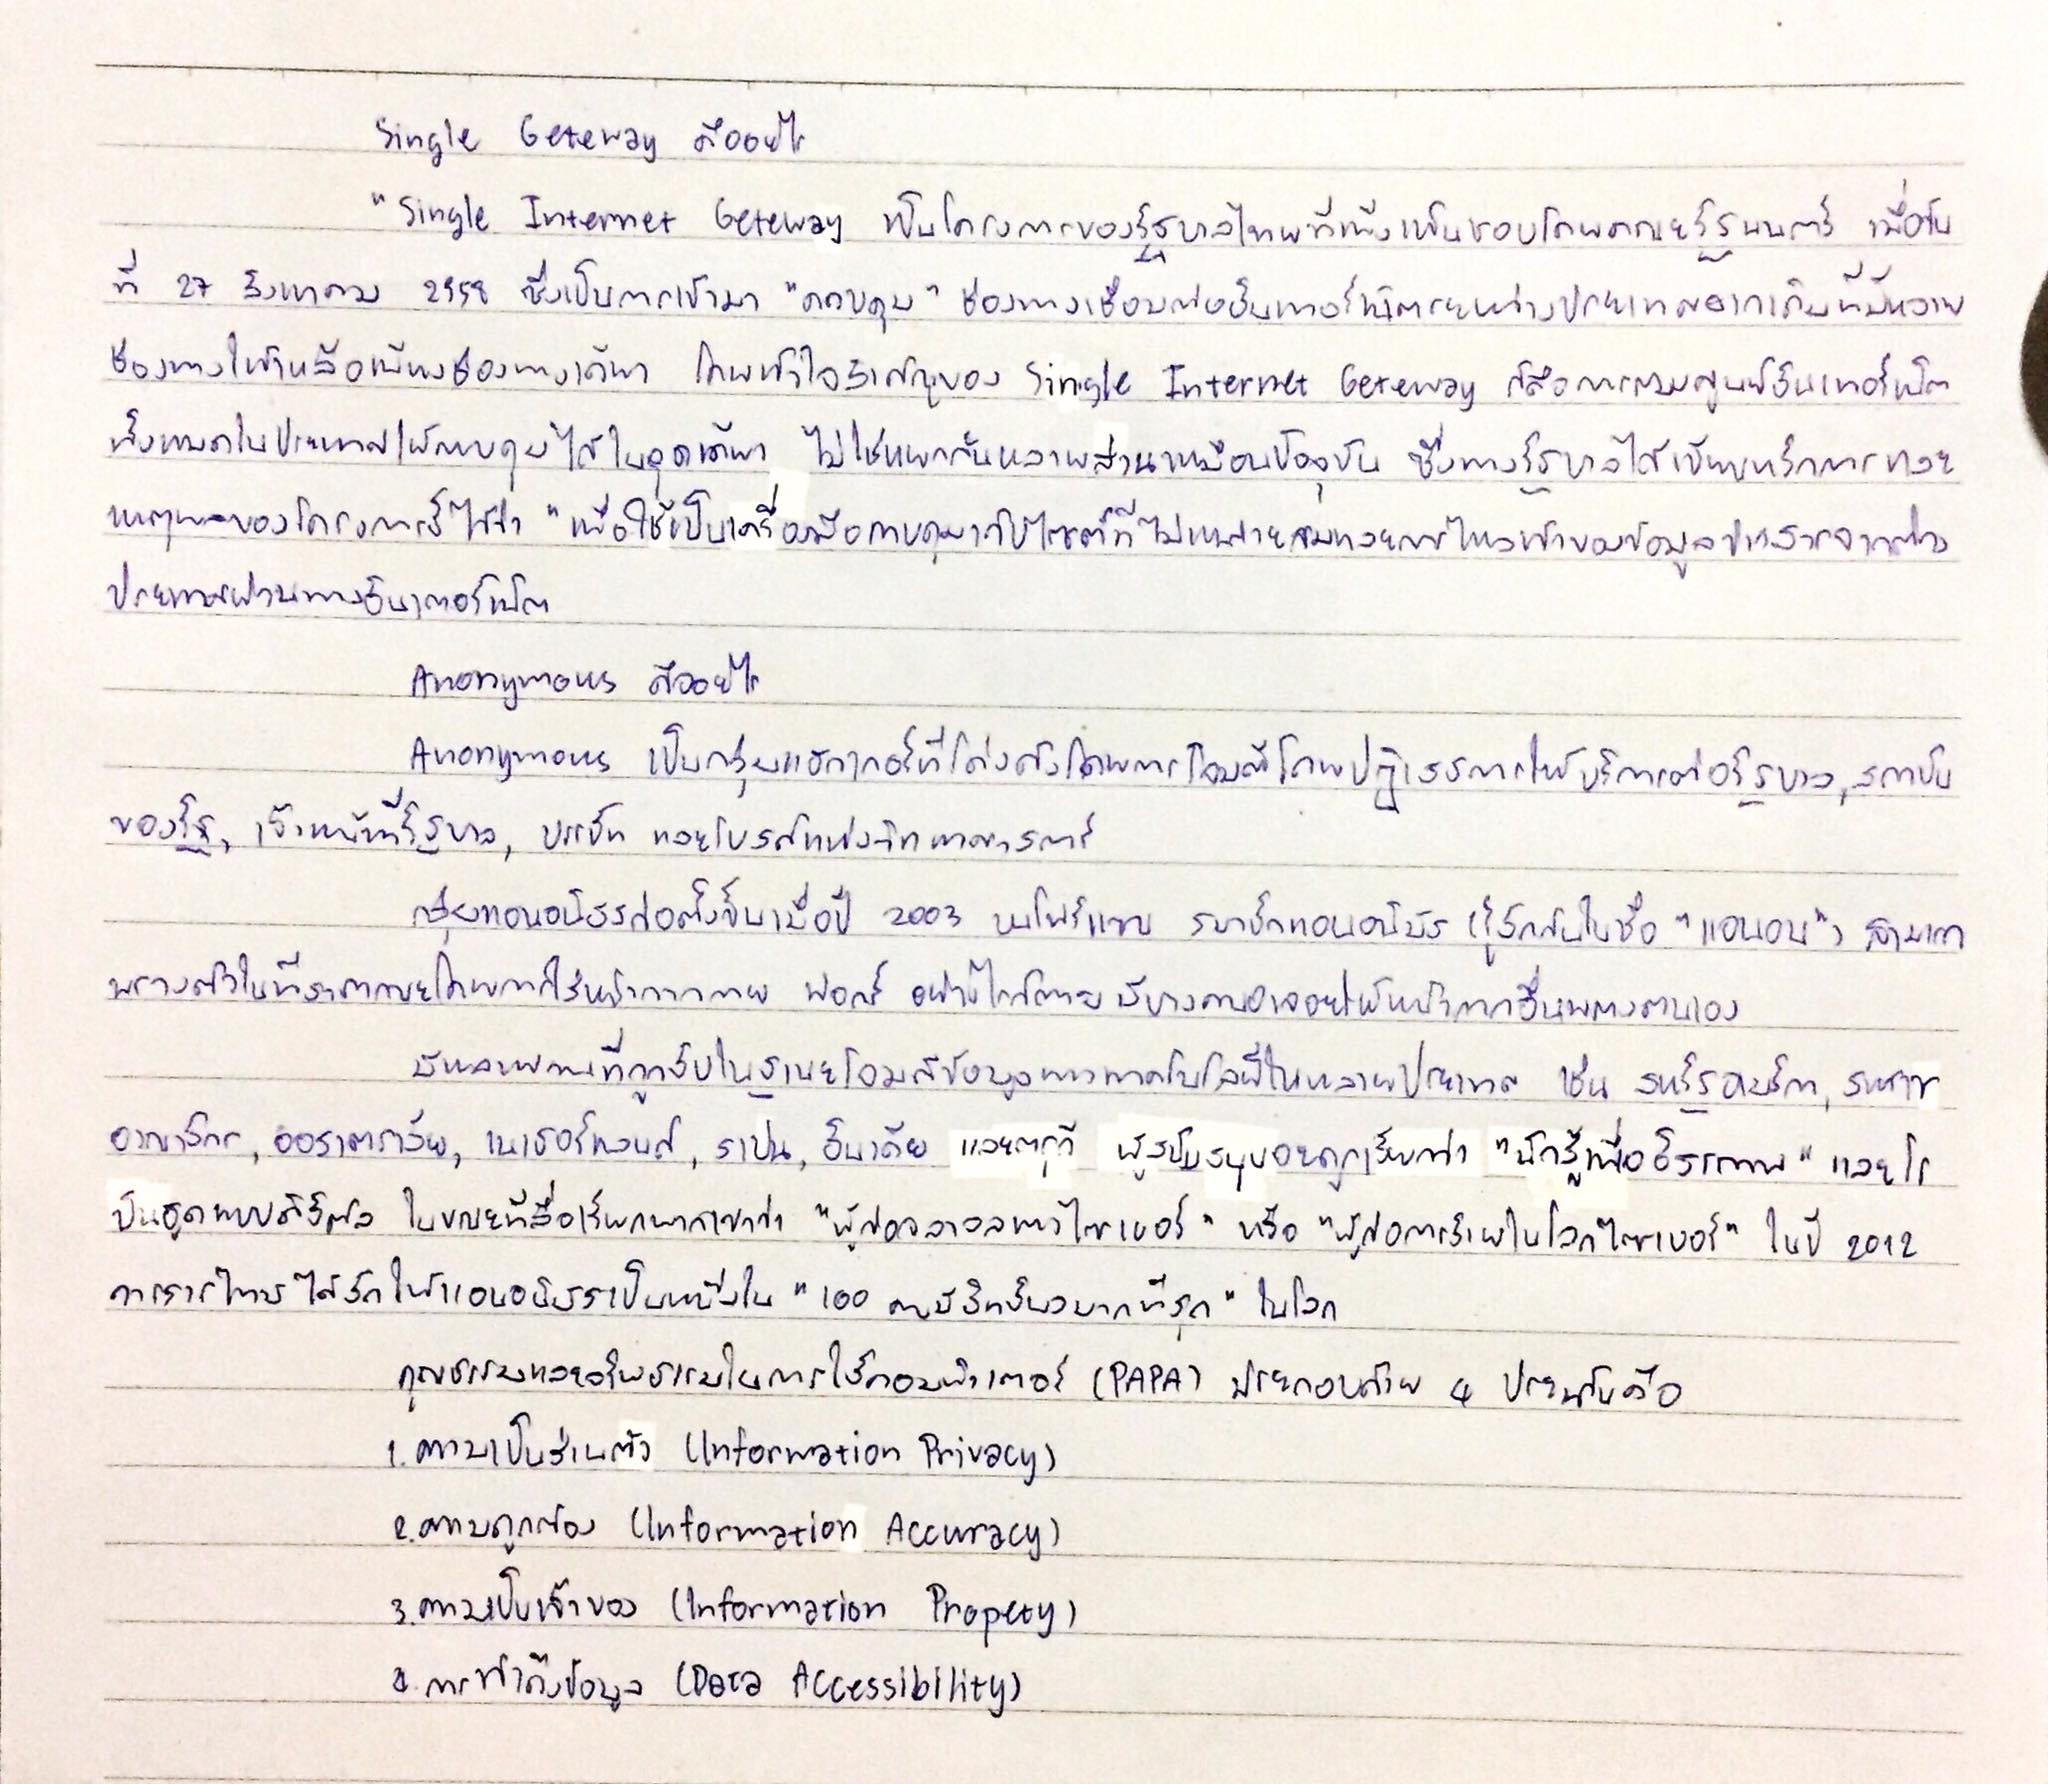 Single Geteway คืออะไร
"Single Internet Geteway เป็นโครงการของรัฐบาลไทยที่เพิ่งเห็นชอบโดยคณะรัฐมนตรี เมื่อวัน
ที่ 27 สิงหาคม 2558 ซึ่งเป็นการเข้ามา "ควบคุม" ช่องทางเชื่อมต่ออินเทอร์เน็ตระหว่างประเทศจากเดิมที่มีหลาย
ช่องทางให้เหลือเพียงช่องทางเดียว โดยหัวใจสำคัญของ Single Internet Geteway ก็คือการรวมศูนย์อินเทอร์เน็ต
ทั้งหมดในประเทศให้ควบคุมได้ในจุดเดียว ไม่ใช่แยกกันหลายส่วนเหมือนปัจจุบัน ซึ่งทางรัฐบาลได้เขียนหลักการและ
เหตุผลของโครงการนี้ไว้ว่า "เพื่อใช้เป็นเครื่องมือควบคุมเว็บไซต์ที่ไม่เหมาะสมและการไหลเข้าของข้อมูลข่าวสารจากต่าง
ประเทศผ่านทางอินเตอร์เน็ต
Anonymous คืออะไร
Anonymous เป็นกลุ่มแฮกเกอร์ที่โด่งดังโดยการโจมตีโดยปฏิเสธการให้บริการต่อรัฐบาล, สถาบัน
ของรัฐ, เจ้าหน้าที่รัฐบาล, บรรษัท และโบสถ์แห่งวิทยาศาสตร์
กลุ่มแอนอนิมัสก่อตั้งขึ้นเมื่อปี 2003 บนโฟร์แชน สมาชิกแอนอนิมัส (รู้จักกันในชื่อ "แอนอน") สามารถ
พรางตัวในที่สาธารณะโดยการใส่หน้ากากกาย ฟอกส์ อย่างไรก็ตาม มีบางคนอาจอยู่ให้หน้ากากอื่นพรางตนเอง
มีหลายคนที่ถูกจับในฐานะโจมตีข้อมูลทางเทคโนโลยีในหลายประเทศ เช่น สหรัฐอเมริกา, สหราช
อาณาจักร, ออสเตรเลีย, เนเธอร์แลนด์, สเปน, อินเดีย และตุรกี ผู้สนับสนุนแอนอนถูกเรียกว่า "นักสู้เพื่ออิสรภาพ" และโร
บินฮูดแบบดิจิตัล ในขณะที่สื่อเรียกพวกเขาว่า "ผู้ก่อจลาจลทางไซเบอร์" หรือ "ผู้ก่อการร้ายในโลกไซเบอร์" ในปี 2012
วารสารไทม์ ได้จัดให้แอนอนิมัสเป็นหนึ่งใน "100 คนมีอิทธิพลมากที่สุด" ในโลก
คุณธรรมและจริยธรรมในการใช้คอมพิวเตอร์ (PAPA) ประกอบด้วย 4 ประเด็นคือ
1. ความเป็นส่วนตัว (Information Privacy)
2. ความถูกต้อง (Information Accuracy)
3. ความเป็นเจ้าของ (Information Propety)
4. การเข้าถึงข้อมูล (Data Accessibility)